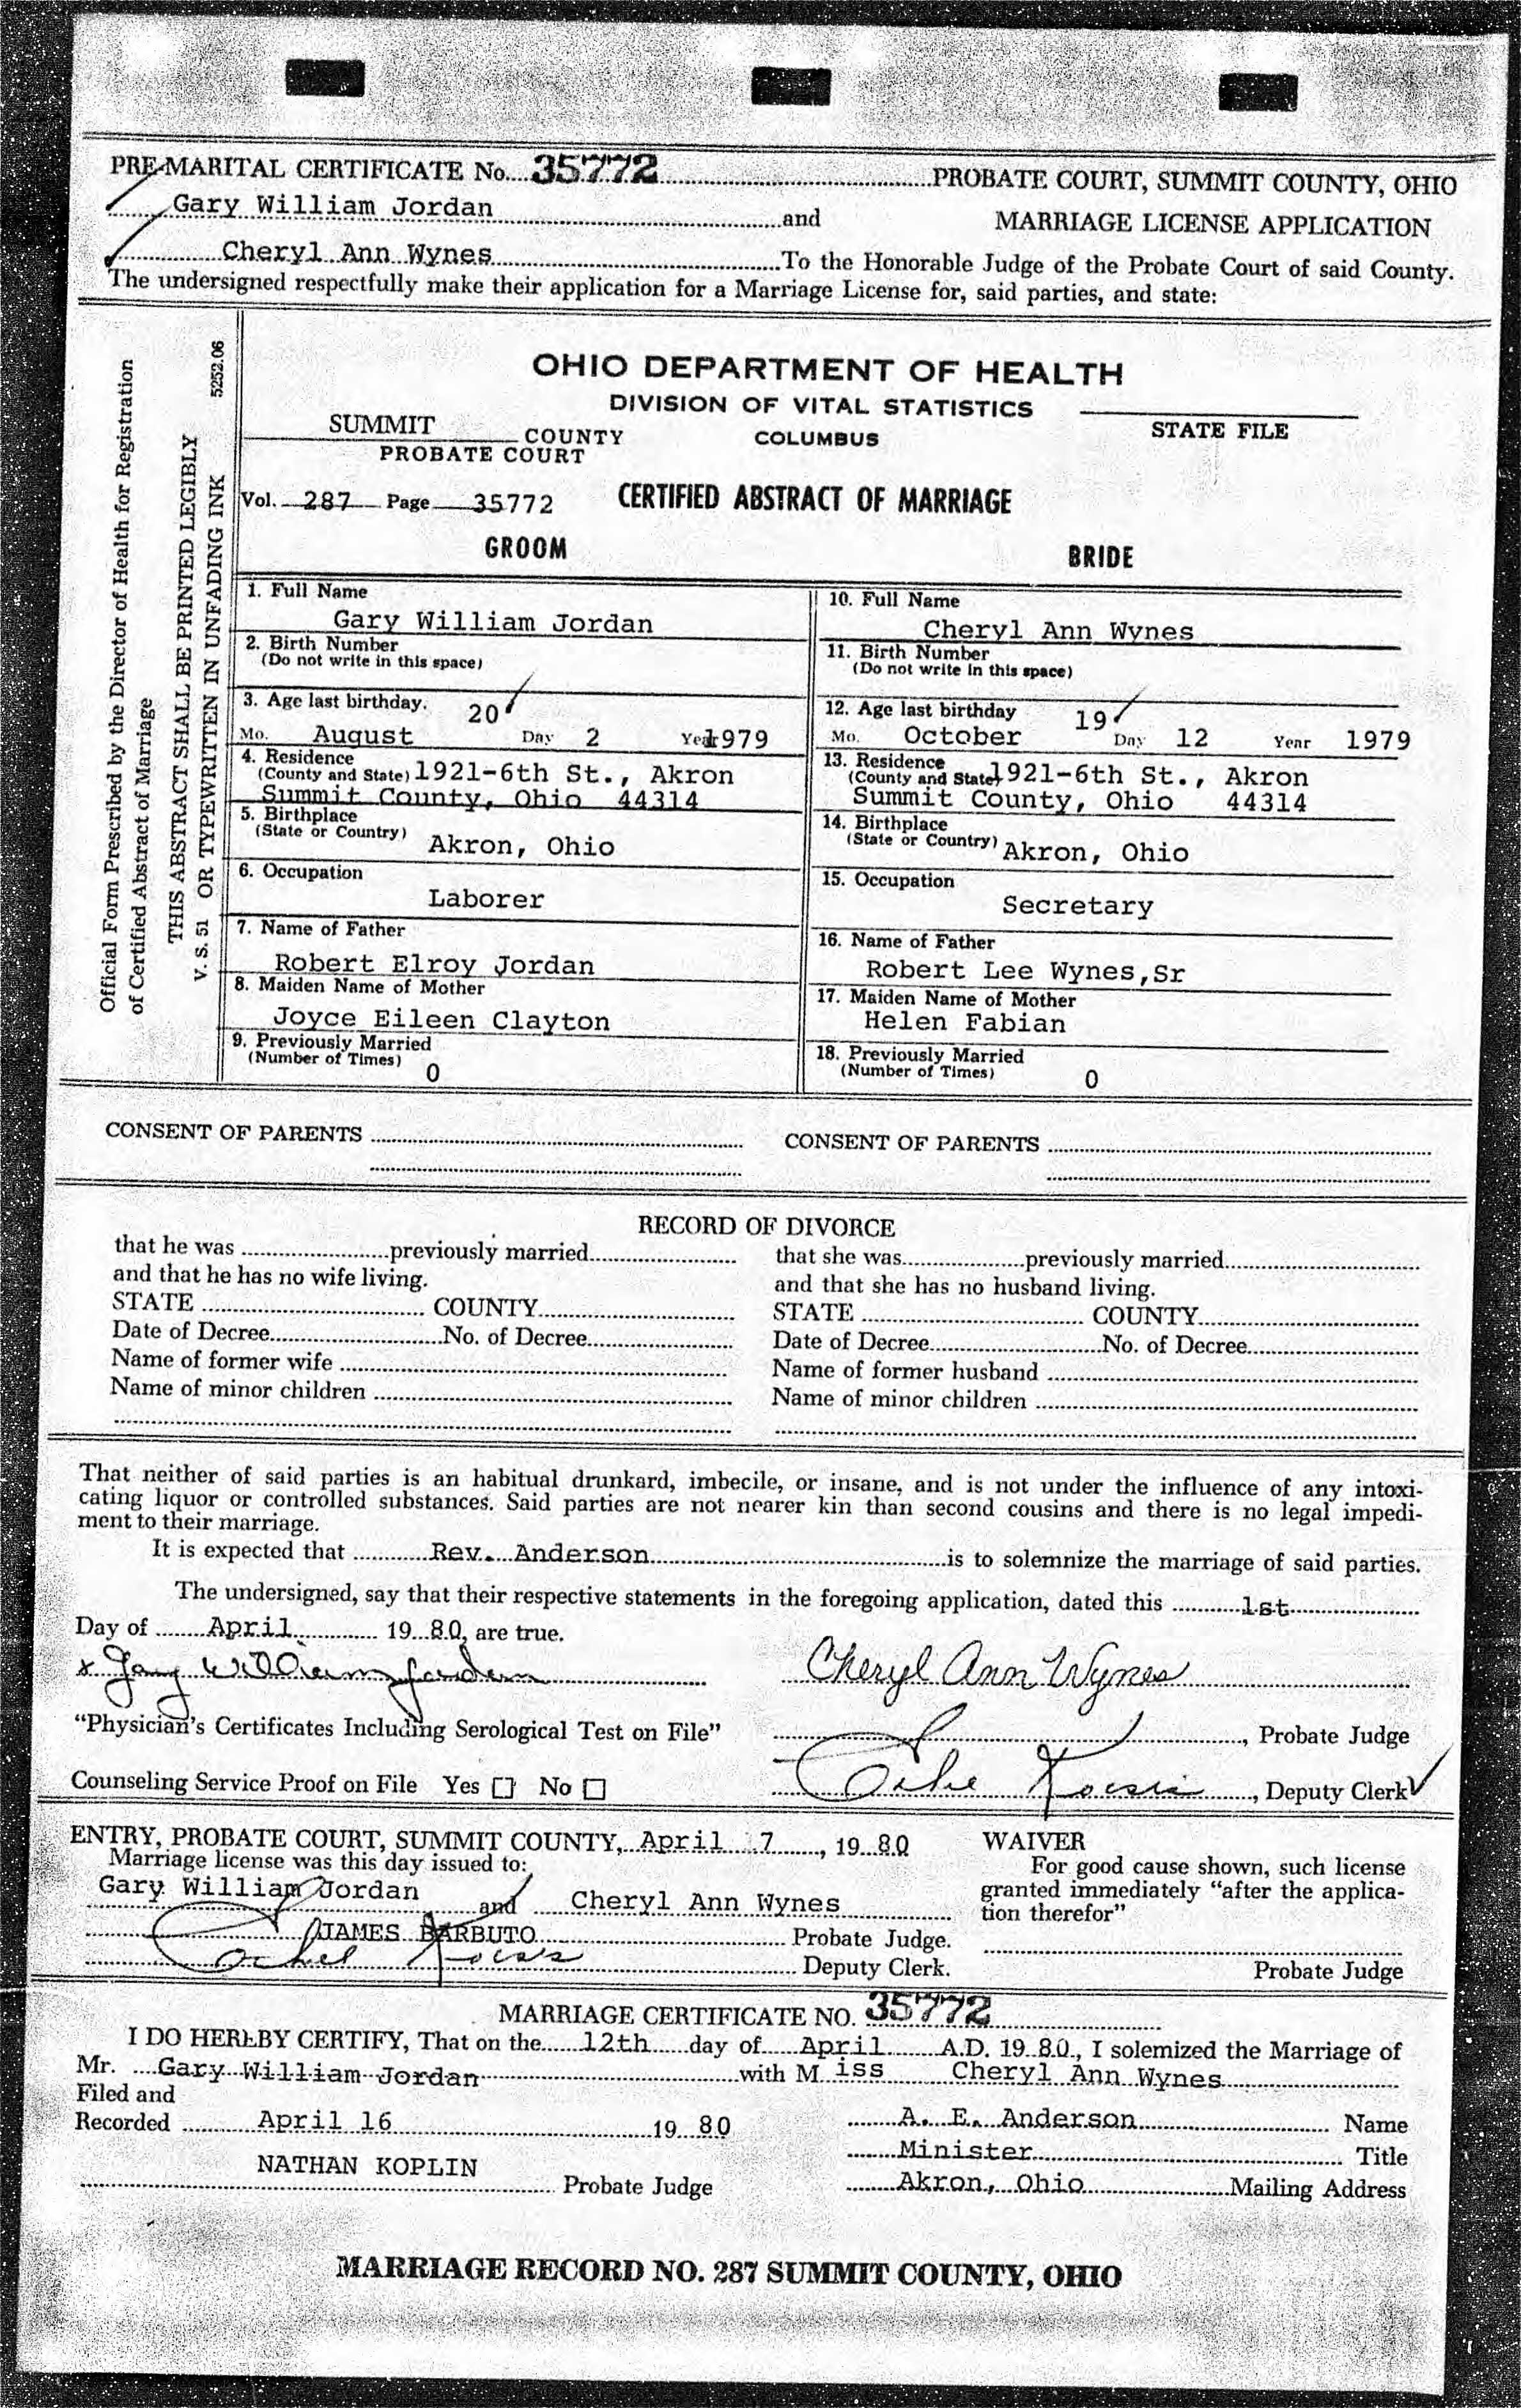 PRE-MARITAL CERTIFICATE No. 35772 PROBATE COURT, SUMMIT COUNTY, OHIO
Gary William Jordan and MARRIAGE LICENSE APPLICATION
Cheryl Ann Wynes To the Honorable Judge of the Probate Court of said County.
The undersigned respectfully make their application for a Marriage License for, said parties, and state:
Official Form Prescribed by the Director of Health for Registration
of Certified Abstract of Marriage
THIS ABSTRACT SHALL BE PRINTED LEGIBLY
V. S. 51 OR TYPEWRITTEN IN UNFADING INK 5252.06
OHIO DEPARTMENT OF HEALTH
DIVISION OF VITAL STATISTICS
SUMMIT COUNTY COLUMBUS STATE FILE
PROBATE COURT
Vol. 287 Page 35772 CERTIFIED ABSTRACT OF MARRIAGE
GROOM BRIDE
1. Full Name
Gary William Jordan
2. Birth Number
(Do not write in this space)
3. Age last birthday. 20
Mo. August Day 2 Year 1979
4. Residence
(County and State) 1921-6th St., Akron
Summit County, Ohio 44314
5. Birthplace
(State or Country) Akron, Ohio
6. Occupation
Laborer
7. Name of Father
Robert Elroy Jordan
8. Maiden Name of Mother
Joyce Eileen Clayton
9. Previously Married
(Number of Times) 0
10. Full Name
Cheryl Ann Wynes
11. Birth Number
(Do not write in this space)
12. Age last birthday 19
Mo. October Day 12 Year 1979
13. Residence
(County and State) 1921-6th St., Akron
Summit County, Ohio 44314
14. Birthplace
(State or Country) Akron, Ohio
15. Occupation
Secretary
16. Name of Father
Robert Lee Wynes,Sr
17. Maiden Name of Mother
Helen Fabian
18. Previously Married
(Number of Times) 0
CONSENT OF PARENTS CONSENT OF PARENTS
RECORD OF DIVORCE
that he was previously married
and that he has no wife living.
STATE COUNTY
Date of Decree No. of Decree
Name of former wife
Name of minor children
that she was previously married
and that she has no husband living.
STATE COUNTY
Date of Decree No. of Decree
Name of former husband
Name of minor children
That neither of said parties is an habitual drunkard, imbecile, or insane, and is not under the influence of any intoxi-
cating liquor or controlled substances. Said parties are not nearer kin than second cousins and there is no legal impedi-
ment to their marriage.
It is expected that Rev. Anderson is to solemnize the marriage of said parties.
The undersigned, say that their respective statements in the foregoing application, dated this 1st
Day of April 19 80, are true.
x Gary William Jordan Cheryl Ann Wynes
"Physician's Certificates Including Serological Test on File" , Probate Judge
Counseling Service Proof on File Yes No , Deputy Clerk
ENTRY, PROBATE COURT, SUMMIT COUNTY, April 7, 19 80
Marriage license was this day issued to:
Gary William Jordan and Cheryl Ann Wynes
JAMES BARBUTO Probate Judge.
Deputy Clerk.
WAIVER
For good cause shown, such license
granted immediately "after the applica-
tion therefor"
Probate Judge
MARRIAGE CERTIFICATE NO. 35772
I DO HEREBY CERTIFY, That on the 12th day of April A.D. 19 80, I solemized the Marriage of
Mr. Gary William Jordan with M iss Cheryl Ann Wynes
Filed and
Recorded April 16 19 80
NATHAN KOPLIN
Probate Judge
A. E. Anderson Name
Minister Title
Akron, Ohio Mailing Address
MARRIAGE RECORD NO. 287 SUMMIT COUNTY, OHIO